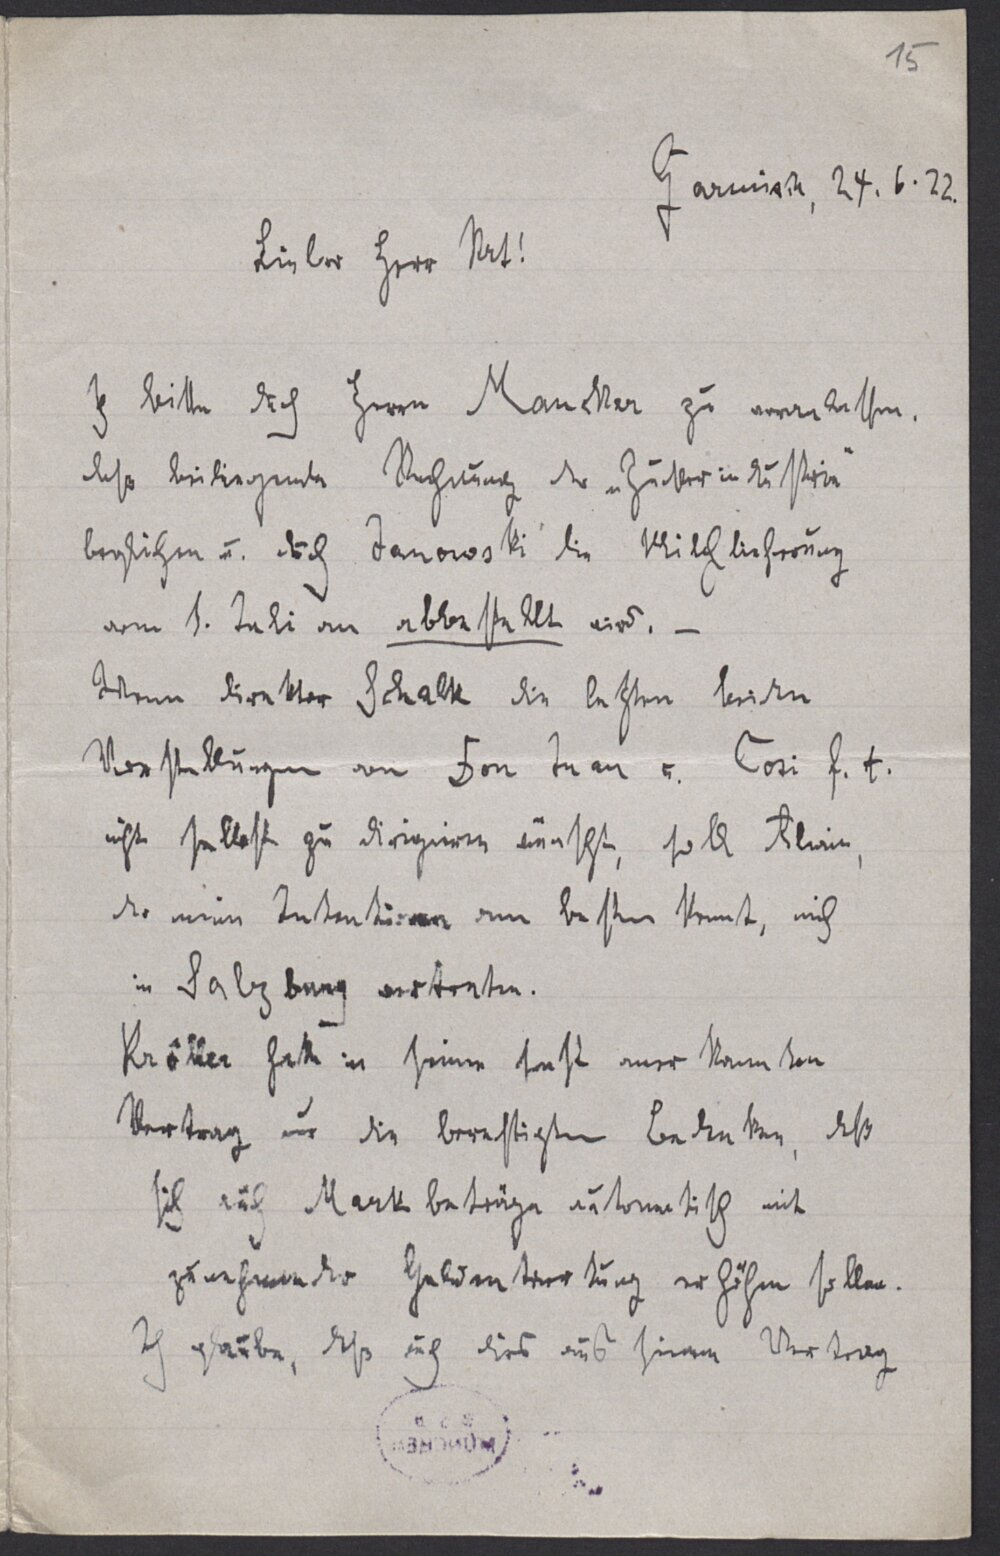 15
Garmisch, 24. 6. 22.
Lieber Herr Rat!
Ich bitte doch Herrn zu veranlassen,
daß beiliegende Rechnung der „Zuckerindustrie"
beglichen u. durch Janowski die Milchlieferung
vom 1. Juli an abbestellt wird. —
Wenn Direktor Schalk die letzten beiden
Vorstellungen von Don Juan u. Cosi f. t.
nicht selbst zu dirigieren wünscht, soll Alwin,
der meine Intentionen am besten kennt, mich
in Salzburg vertreten.
Kröller hatte in seinem sonst anerkannten
Vertrag nur die berechtigten Bedenken, daß
sich auch Markbeträge automatisch mit
zunehmender Geldentwertung erhöhen sollen.
Ich glaube, daß auch dies aus seinem Vertrag
MÜNCHEN